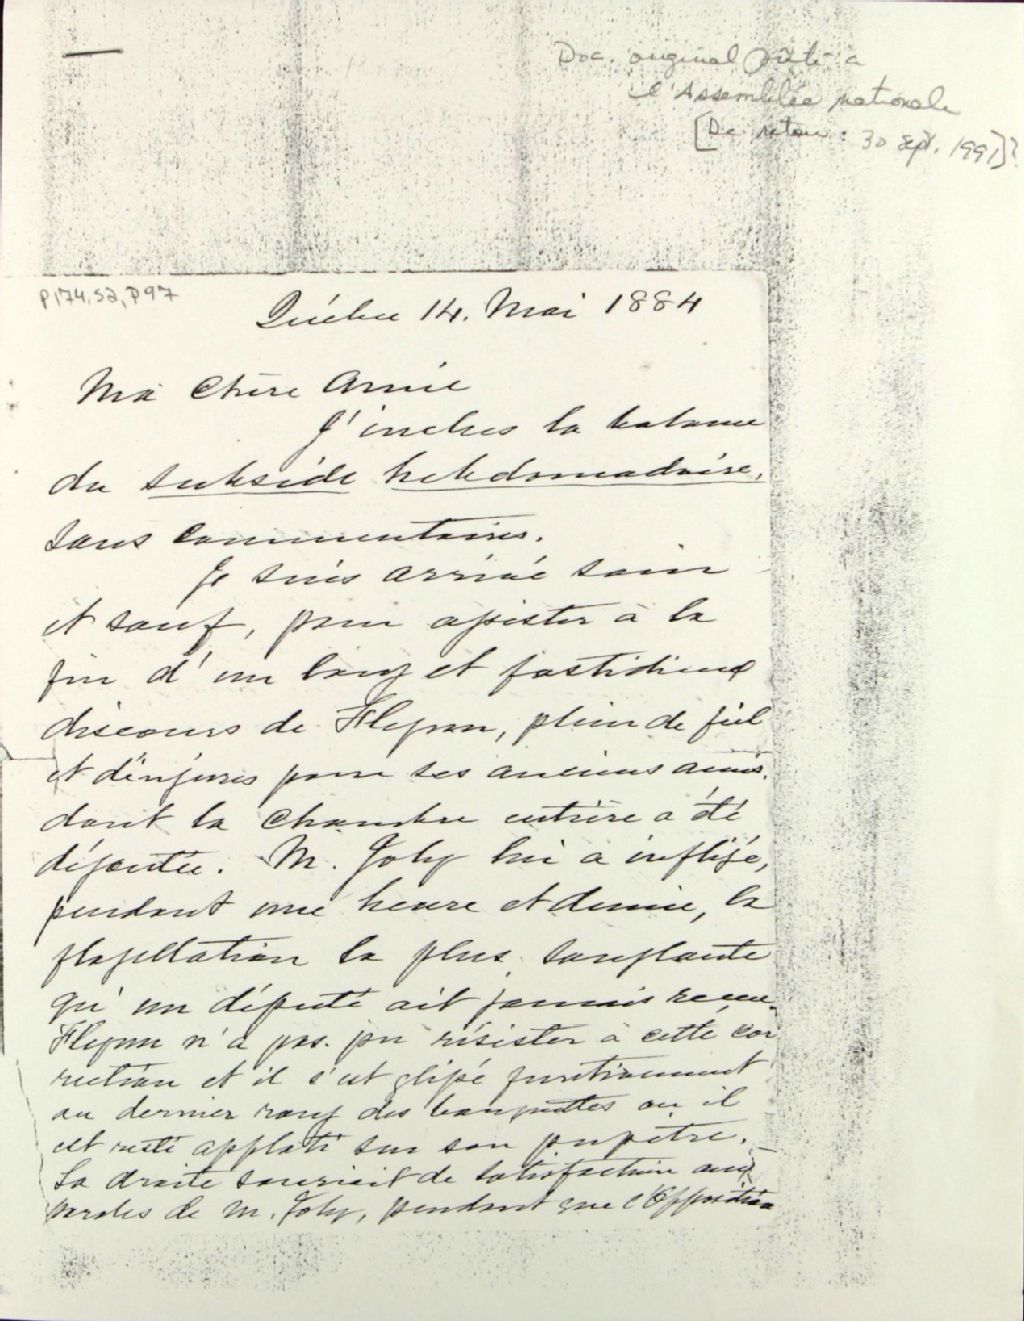 Doc. original prêté à
l'Assemblée nationale
[De retour : 30 sept. 1991]?
P174,S2,P97
Québec 14. Mai 1884
Ma Chère Amie
J'inclus la balance
du subside hebdomadaire,
sans commentaires.
Je suis arrivé sain
et sauf, pour assister à la
fin d'un long et fastidieux
discours de Flynn, plein de fiel
et d'injures pour ses anciens amis.
dont la Chambre entière a été
dégoutée. M. Joly lui a infligé,
pendant une heure et demie, la
flagellation la plus sanglante
qu'un député ait jamais recue.
Flynn n'a pas pu résister à cette cor
rection et il s'est glissé furtivement
au dernier rang des banquettes ou il
est resté applati sur son pupitre.
La droite souriait de satisfaction aux
paroles de M. Joly, pendant que l'Opposition